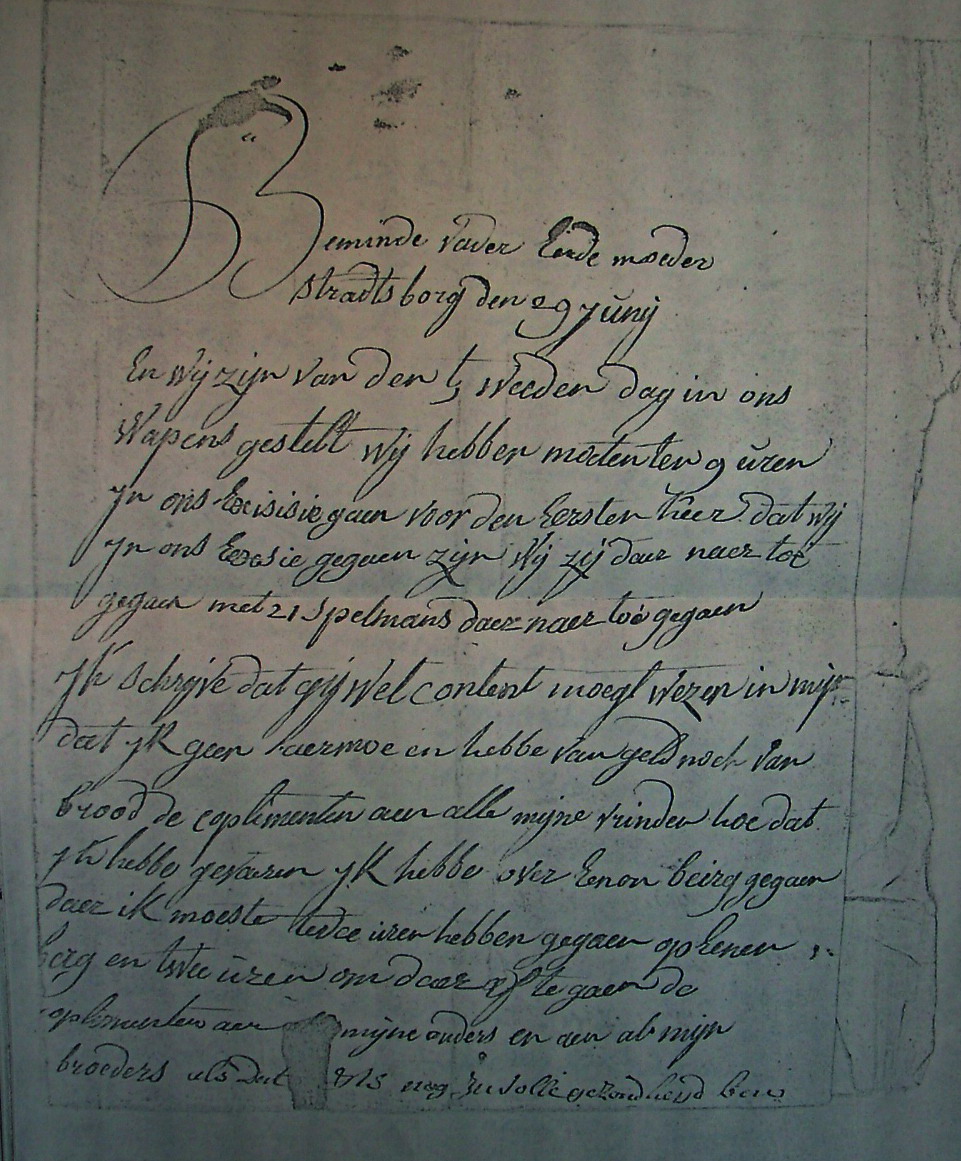 Beminde vader Ende moeder
Stradtsborg den 29 Junij
En wij zijn van den tweeden dag in ons
wapens gestelt wij hebben moeten ten 9 uren
yn ons Excisisie gaen voor den Eersten keer dat wij
yn ons gegaen zijn wij zij daer naer toe
gegaen met 21 spelmans daer naer toe gegaen
yk schryve dat gij wel content moegt wezen in mijn
dat yk geen aermoe en hebbe van geld noch van
brood de coplimenten aen alle mijne vrinden hoe dat
yk hebbe gevaren yk hebbe over Enen beirg gegaen
daer ik moeste twee uren hebben gegaen op Eenen
berg en twee uren om daer af te gaen de
coplimenten aen mijne ouders en aen al mijn
broeders als dat nog in volle gezondheyd ben